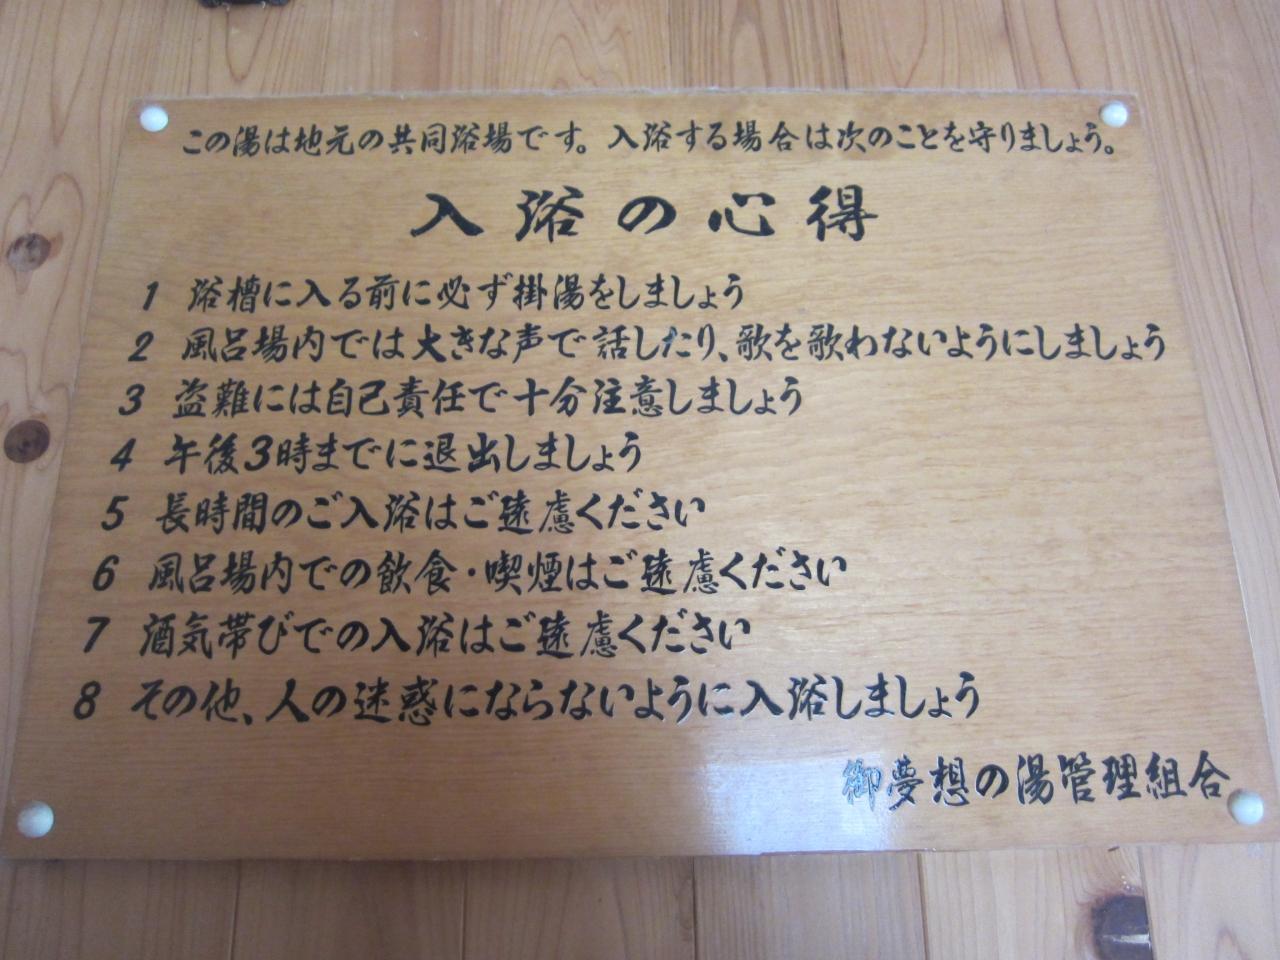 この湯は地元の共同浴場です。入浴する場合は次のことを守りましょう。
入浴の心得
1 浴槽に入る前に必ず掛湯をしましょう
2 風呂場内では大きな声で話したり、歌を歌わないようにしましょう
3 盗難には自己責任で十分注意しましょう
4 午後3時までに退出しましょう
5 長時間のご入浴はご遠慮ください
6 風呂場内での飲食・喫煙はご遠慮ください
7 酒気帯びでの入浴はご遠慮ください
8 その他、人の迷惑にならないように入浴しましょう
御夢想の湯管理組合